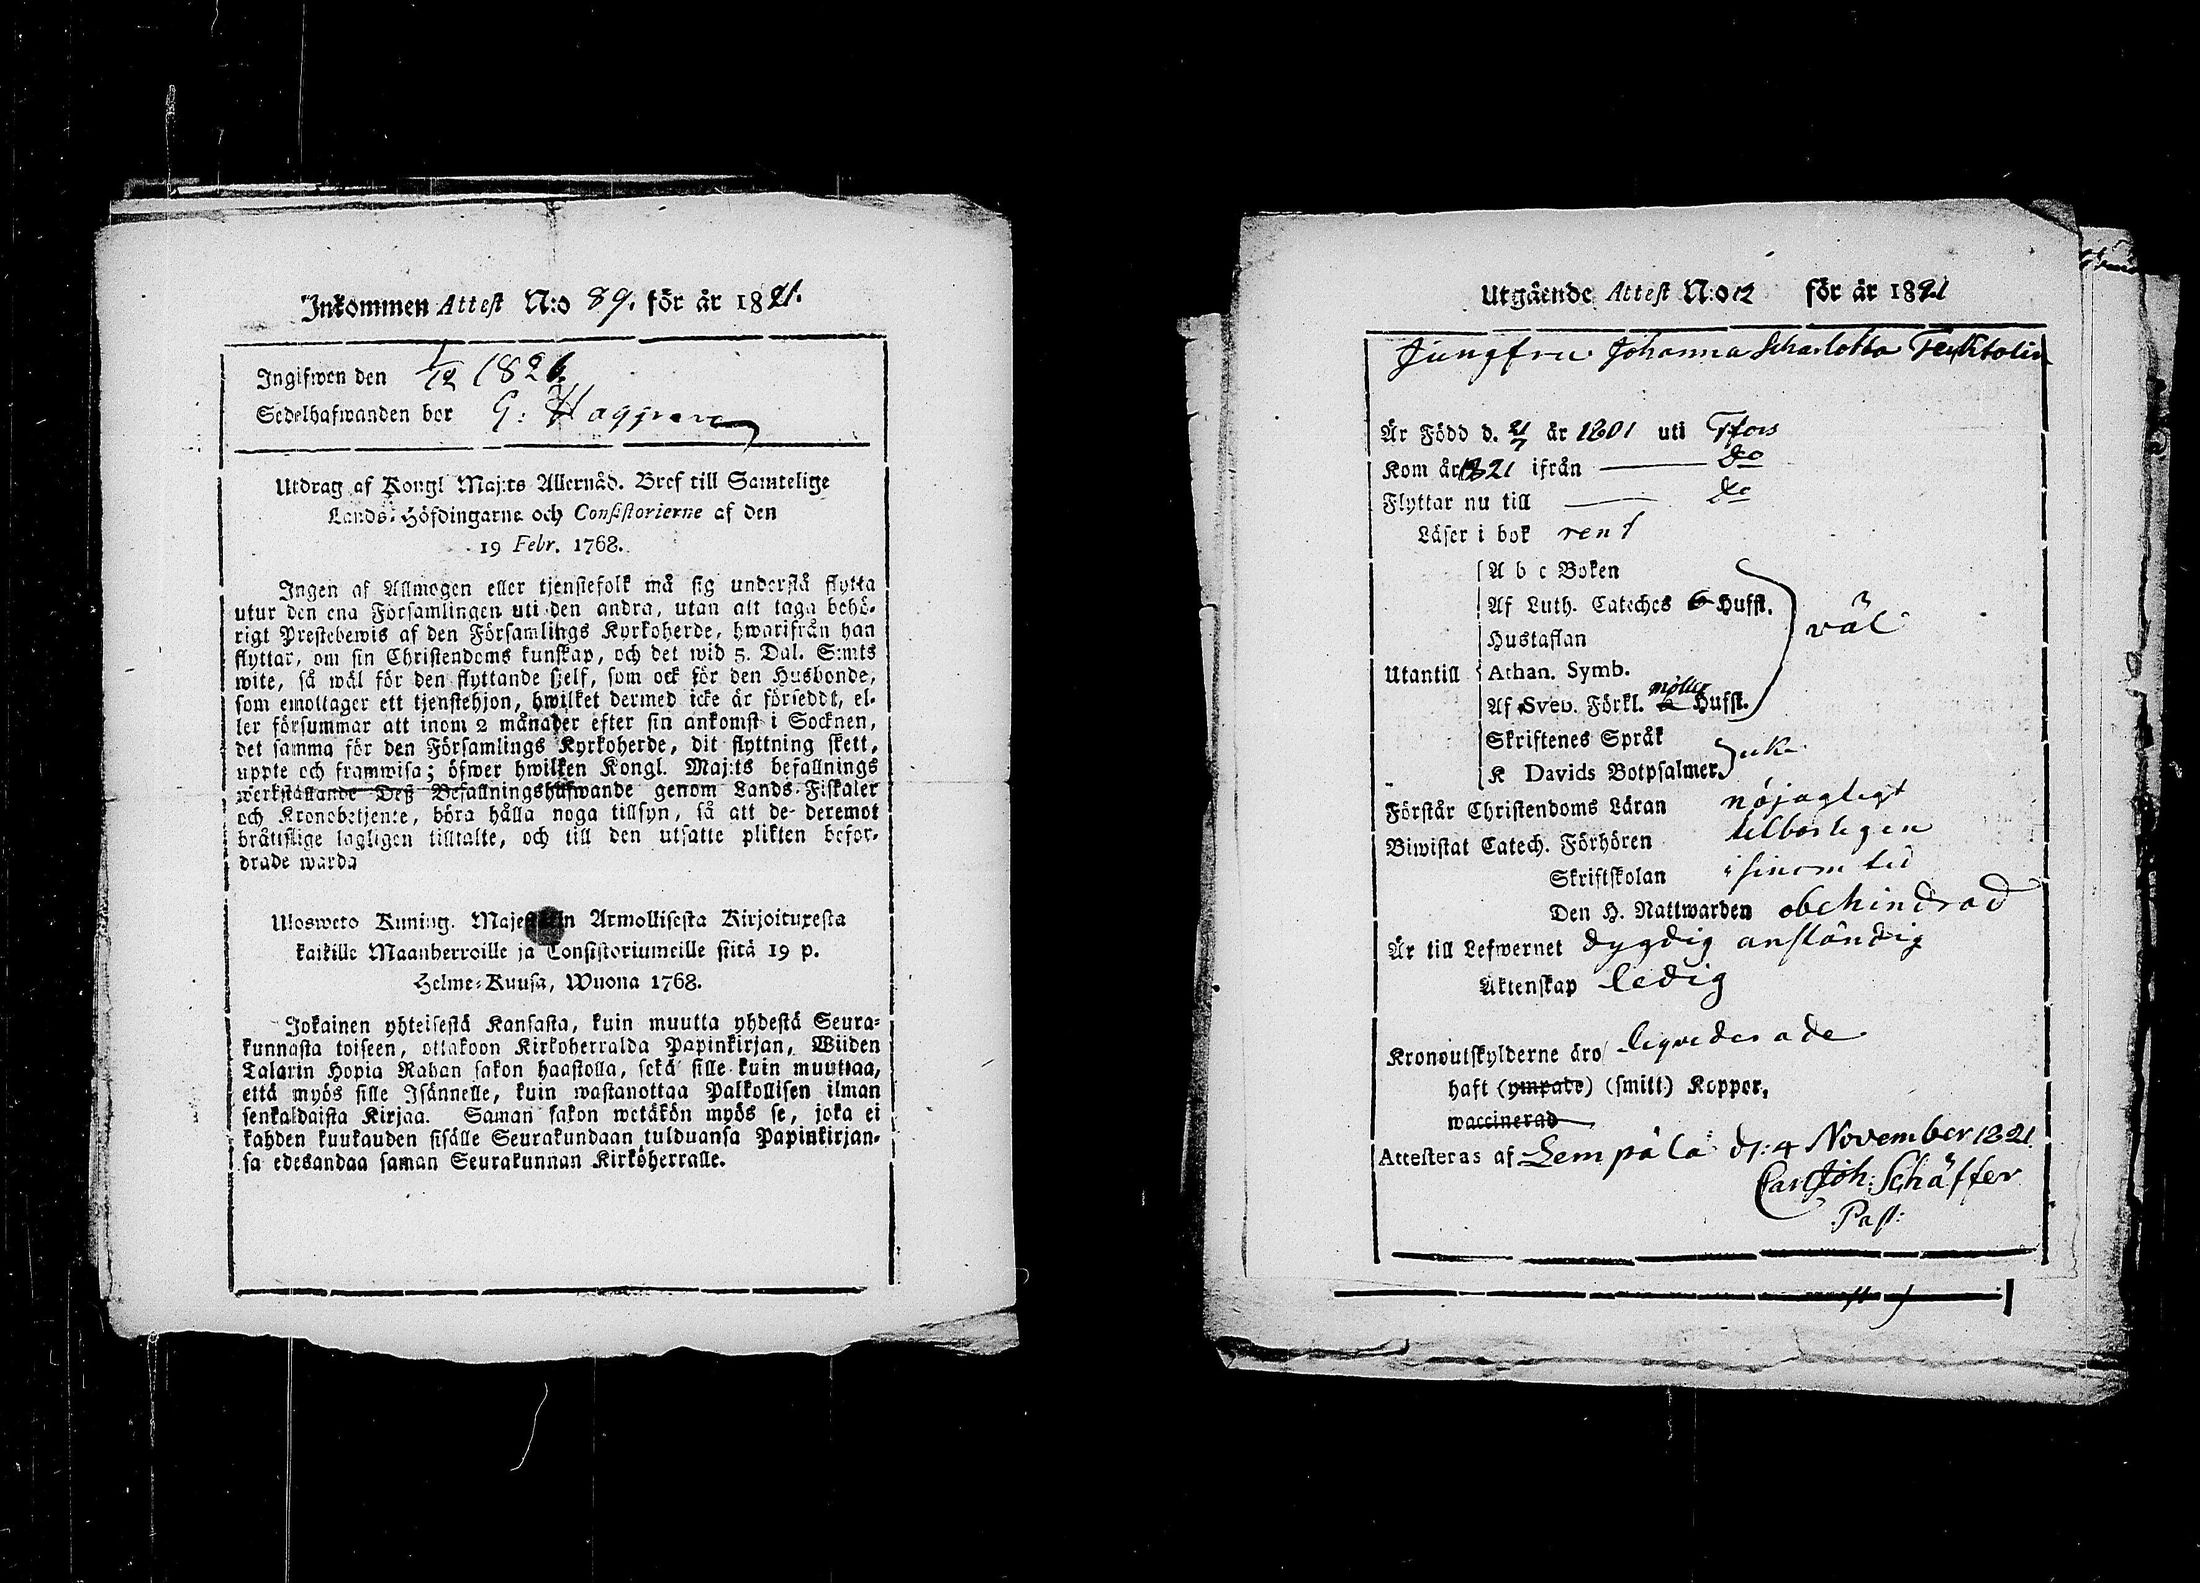 Inkommen Attest N:o 89. för år 1821.
Ingifwen den 1/12 1821.
Sedelhafwanden bor G:
Utdrag af Kongl Maj:ts Allernåd. Bref till Samtelige
Lands-Höfdingarne och Consistorierne af den
19 Febr. 1768.
Ingen af Allmogen eller tjenstefolk må sig understå flytta
utur den ena Församlingen uti den andra, utan att taga behö-
rigt Prestebewis af den Församlings Kyrkoherde, hwarifrån han
flyttar, om sin Christendoms kunskap, och det wid 5. Dal. S:mts
wite, så wäl för den flyttande sjelf, som ock för den Husbonde,
som emottager ett tjenstehjon, hwilket dermed icke är försedt, el-
ler försummar att inom 2 månader efter sin ankomst i Socknen,
det samma för den Församlings Kyrkoherde, dit flyttning skett,
uppte och framwisa; öfwer hwilken Kongl. Maj:ts befallnings
werkställande Deß Befallningshafwande genom Lands-Fiskaler
och Kronobetjente, böra hålla noga tillsyn, så att de deremot
bråttslige lagligen tilltalte, och till den utsatte plikten befor-
drade warda
Ulosweto Kuning. Majestetin Armollisesta Kirjoituxesta
kaikille Maanherroille ja Consistoriumeille siitä 19 p.
Helme-Kuusa, Wuona 1768.
Jokainen yhteisestä Kansasta, kuin muutta yhdestä Seura-
kunnasta toiseen, ottakoon Kirkoherralda Papinkirjan, Wiiden
Talarin Hopia Rahan sakon haastolla, sekä sille kuin muuttaa,
että myös sille Isännelle, kuin wastanottaa Palkollisen ilman
senkaldaista Kirjaa. Saman sakon wetäkön myös se, joka ei
kahden kuukauden sisälle Seurakundaan tulduansa Papinkirjan-
sa edesandaa saman Seurakunnan Kirkoherralle.
Utgående Attest N:o 12 för år 1821
Jungfru Johanna Scharlotta
Är Född d. 21/7 år 1801 uti Tfors
Kom år 1821 ifrån do
Flyttar nu till do
Läser i bok rent
A b c Boken
Af Luth. Cateches 6 Hufst.
Hustaflan väl
Utantill Athan. Symb.
Af Sveb. Förkl. Hufst.
Skriftenes Språk
K Davids Botpsalmer
Förstår Christendoms Läran nöjagligt
Biwistat Catech. Förhören tilbörligen
Skriftskolan i sinom tid
Den H. Nattwarden obehindrad
Är till Lefwernet dygdig anständig
Äktenskap ledig
Kronoutskylderne äro liqviderade
haft (ympade) (smitt) Koppor,
waccinerad
Attesteras af Lempäla d: 4 November 1821.
Carl Joh: Schäffer
Past: